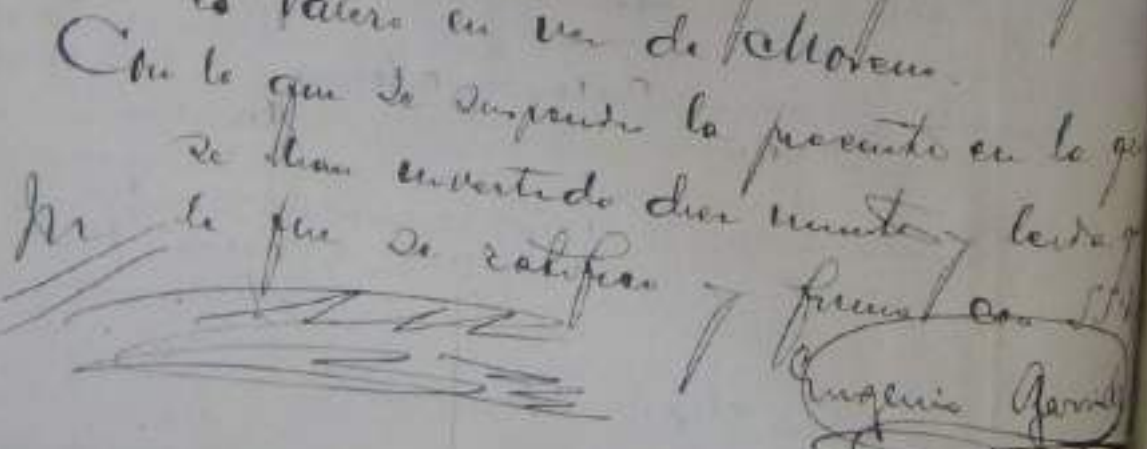 Valero en vez de Moreno.
Con lo que se suspendio la presente en la q
se han invertido diez minutos y leida q
le fue se ratifican y firma con SSª
Eugenio Garrid